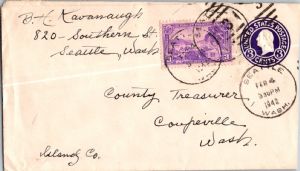 B-H Kavanaugh
820-Southern St.
Seattle, Wash
UNITED STATES POSTAGE
SEATTLE
FEB 4
530PM
1942
WASH.
County Treasurer
Coupeville
Wash.
Island Co.